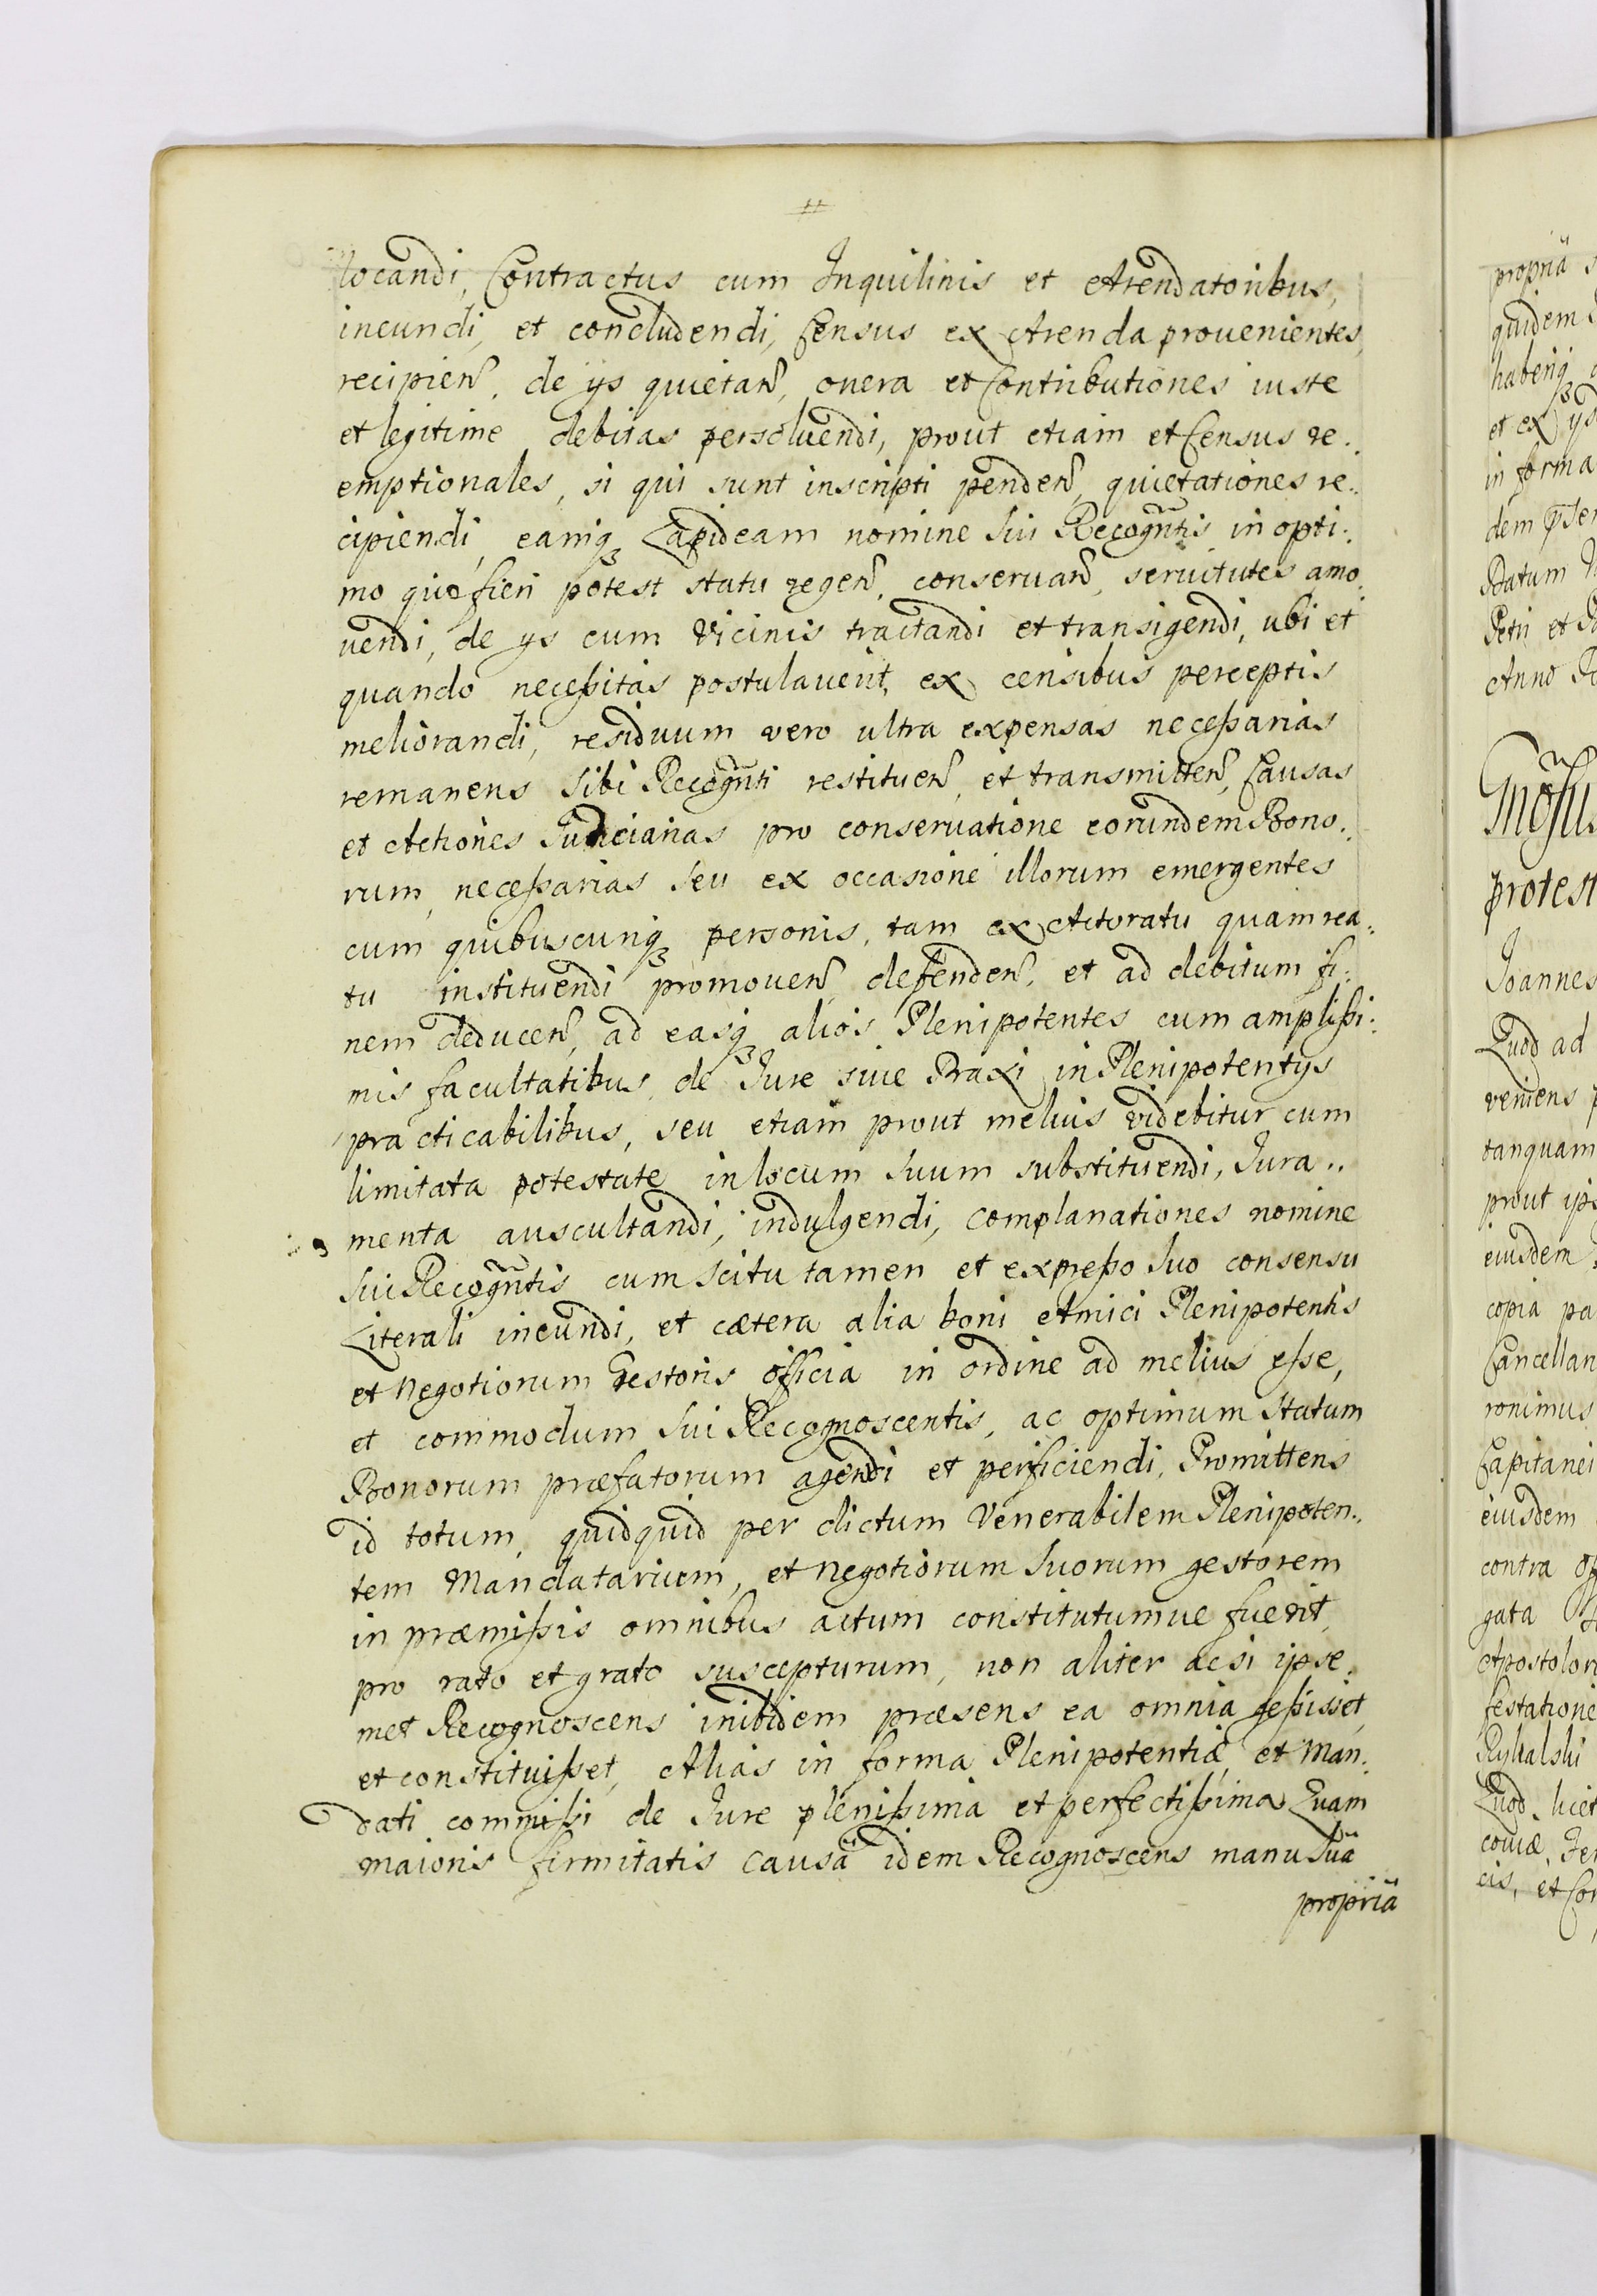 locandi, Contractus cum Inquilinis et Arendatoribus,
ineundi, et concludendi, Census ex Arenda prouenientes,
recipien͂, de ijs quietan͂, onera et Contributiones iuste
et legitime debitas persoluendi, prout etiam et Census re.
emptionales, si qui sunt inscripti penden͂, quietationes re..
cipiendi, eamqꝫ Lapideam nomine sui Recogn͂tis in opti:
mo quo fieri potest statu regen͂, conseruan͂, seruitutes amo.
uendi, de ijs cum Vicinis tractandi et transigendi, ubi et
quando neceßitas postulauerit, ex censibus perceptis
meliorandi, residuum vero ultra expensas neceßarias
remanens sibi Recogn͂ti restituen͂, et transmitten͂, Causas
et Actiones Iudiciarias pro conseruatione eorundem Bono.
rum, neceßarias seu ex occasione illorum emergentes
cum quibuscunqꝫ personis, tam ex Actoratu quam rea.
tu instituendi promouen͂, defenden͂, et ad debitum fi:
nem deducen͂, ad easqꝫ alios Plenipotentes cum amplißi:
mis facultatibus de Iure siue Praxi in Plenipotentijs
practicabilibus, seu etiam prout melius videbitur cum
limitata potestate in locum suum substituendi, Iura..
menta auscultandi, indulgendi, complanationes nomine
sui Recogn͂tis cum scitu tamen et expreßo suo consensu
Literali ineundi, et cætera alia boni et mici Plenipotentis
et Negotiorum Gestoris officia in ordine ad melius esse,
et commodum sui Recognoscentis, ac optimum statum
Bonorum præfatorum agendi et perficiendi, Promittens
id totum, quidquid per dictum Venerabilem Plenipoten..
tem Mandatarium, et Negotiorum suorum gestorem
in præmißis omnibus actum constitutumue fuerit,
pro rato et grato suscepturum, non aliter ac si ipse.
met Recognoscens inibidem præsens ea omnia geßisset,
et constituißet, Alias in forma Plenipotentiæ et Man.
dati commißi de Iure plenißima et perfectißima Quam
maioris firmitatis causâ idem Recognoscens manu suâ
propriâ
propriâ
quidem
habenqꝫ
et ex ijs
in forma
dem
Datum
Petri et
Anno
protest
Ioannes
Quod ad
veniens
tanquam
prout ips
eiusdem
copia pa
Cancellari
ronimus
Capitanei
eiusdem
contra
gata
Apostolor
festatione
Rykalski
Quod, licet
couiæ, Fer
cis, et Con